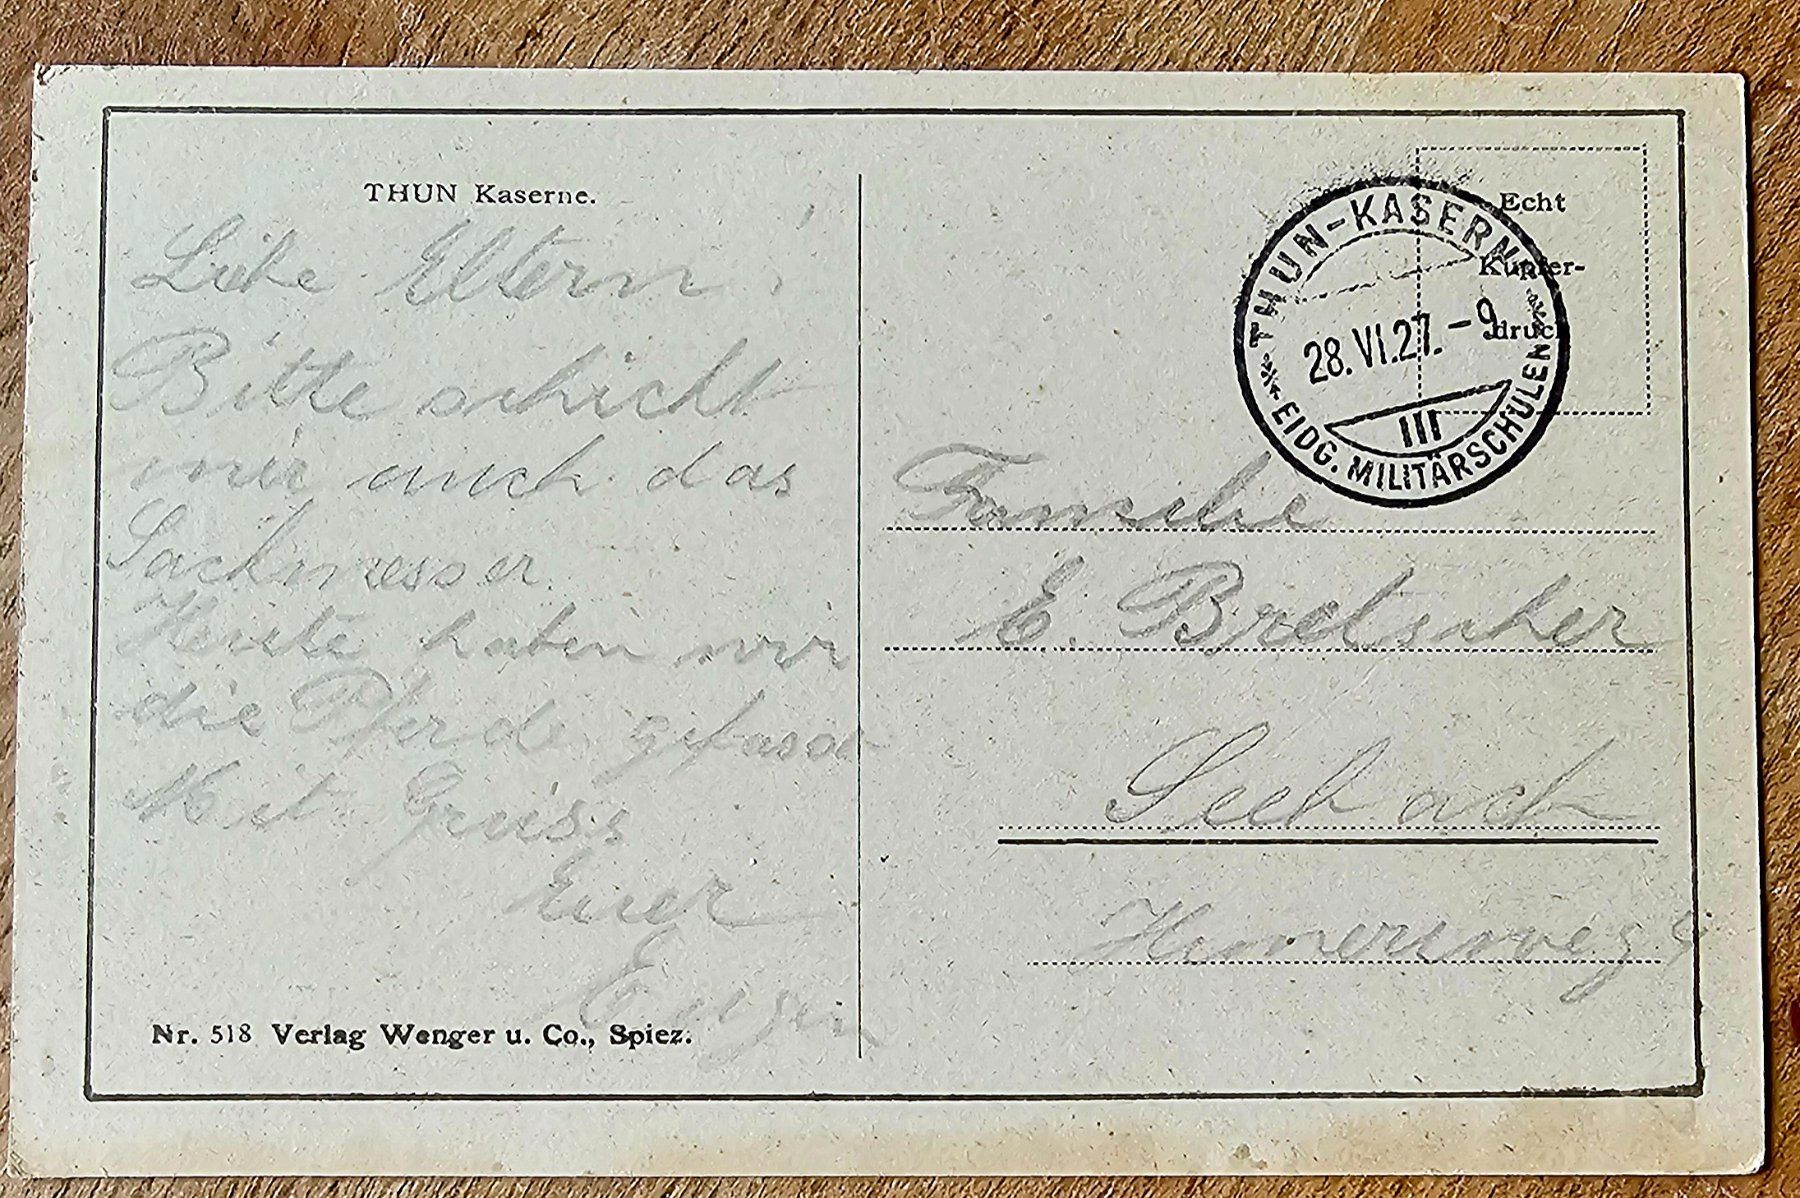 THUN Kaserne.
Liebe Eltern!
Bitte schickt
mir auch das
Sackmesser
Heute haben wir
die Pferde gefasst
Mit Gruss
Euer
Eugen
Nr. 518 Verlag Wenger u. Co., Spiez.
Echt
Kupfer-
druck
THUN-KASERNE
28.VI.27.-9
III
EIDG. MILITÄRSCHULEN
Familie
E. Bretscher
Seebach